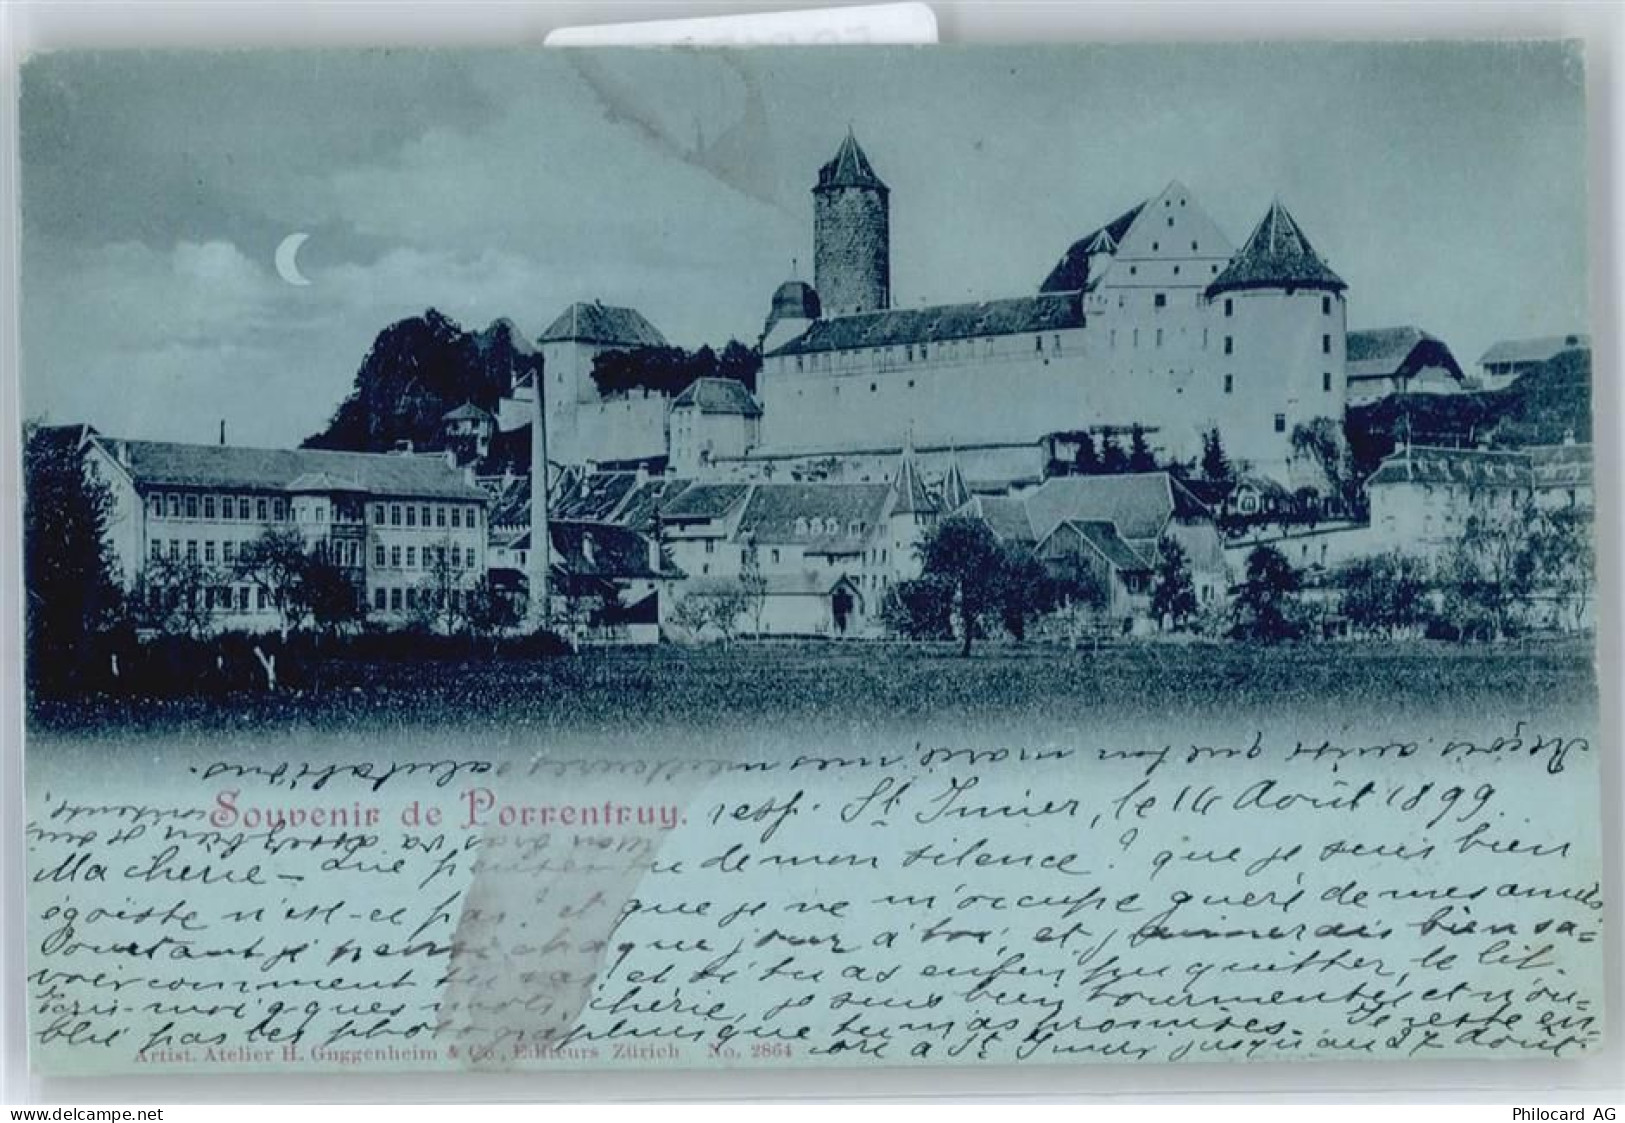 Reçois aussi que ton mari, mes meilleures salutations.
Souvenir de Porrentruy.
resp. St. Imier, le 14 Août 1899.
mon bras va assez bien je suis
contente,
Ma cherie – que de mon silence? que je suis bien
égoïste n'est-ce pas? et que je ne m'occupe guère de mes amies.
Pourtant je pense chaque jour à toi, et j'aimerais bien sa=
voir comment tu vas, et si tu as enfin pu quitter le lit.
Ecris-moi qques mots, chérie, je suis bien tourmentée, et n'ou=
blie pas les photographies que tu m'as promises. Je reste en=
core à St. Imier jusqu'au 27 Août.
Artist. Atelier H. Guggenheim & Co., Editeurs Zürich No. 2864
www.delcampe.net
Philocard AG